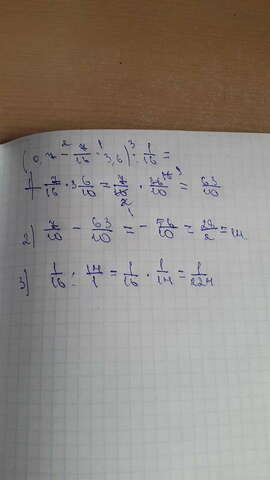 (0,7 - 7/16 · 3,6) : 1/16 =
1) 7/16 · 3 6/10 = 7/16 · 36/10 = 63/10
2) 7/10 - 63/10 = - 56/10 = 28/2 = 14
3) 1/16 : 14/1 = 1/16 · 1/14 = 1/224